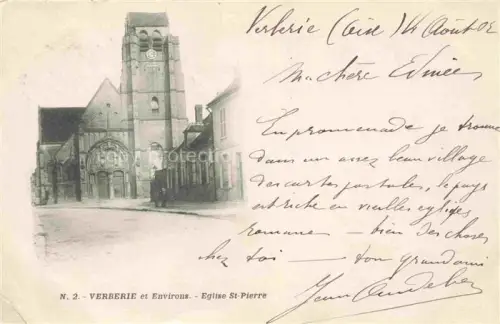 Verberie (Oise) 14 Août 02
Ma chère Edmée
En promenade je trouve
dans un assez beau village
des cartes postales, le pays
est riche en vieilles églises
romanes — bien des choses
chez toi — ton grand ami
Jean
N. 2. - VERBERIE et Environs. - Eglise St-Pierre